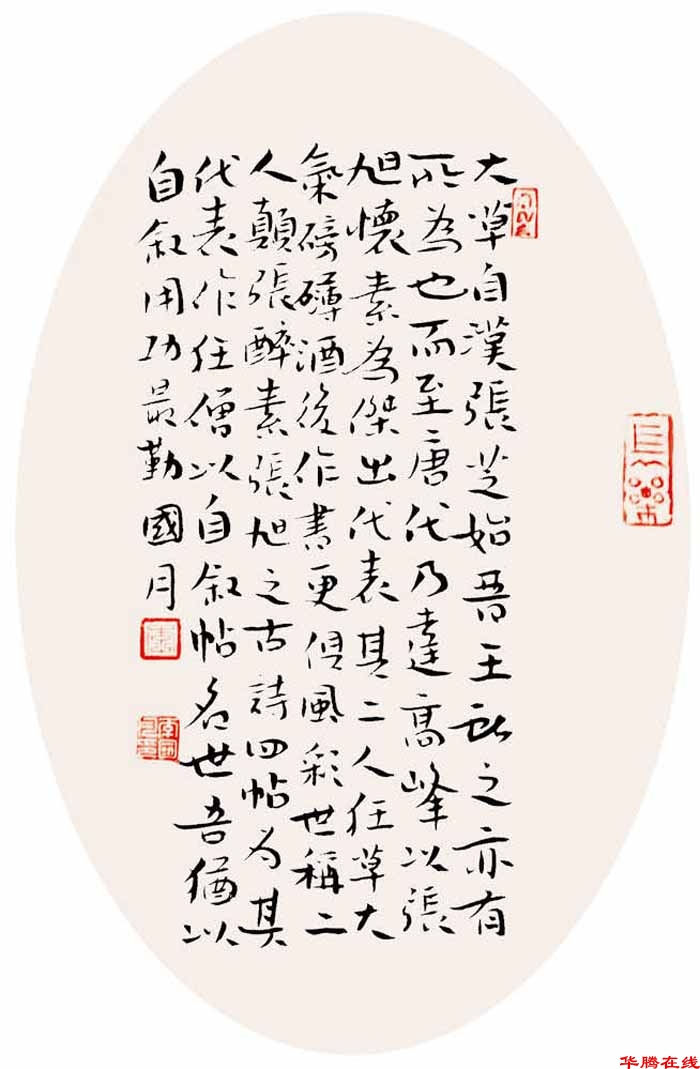 大草自漢張芝始晋王献之亦有
所為也而至唐代乃達高峰以張
旭懷素為傑出代表其二人狂草大
氣磅礴酒後作書更俱風彩世稱二
人顛張醉素張旭之古詩四帖为其
代表作狂僧以自叙帖名世吾猶以
自叙用功最勤國月
华腾在线